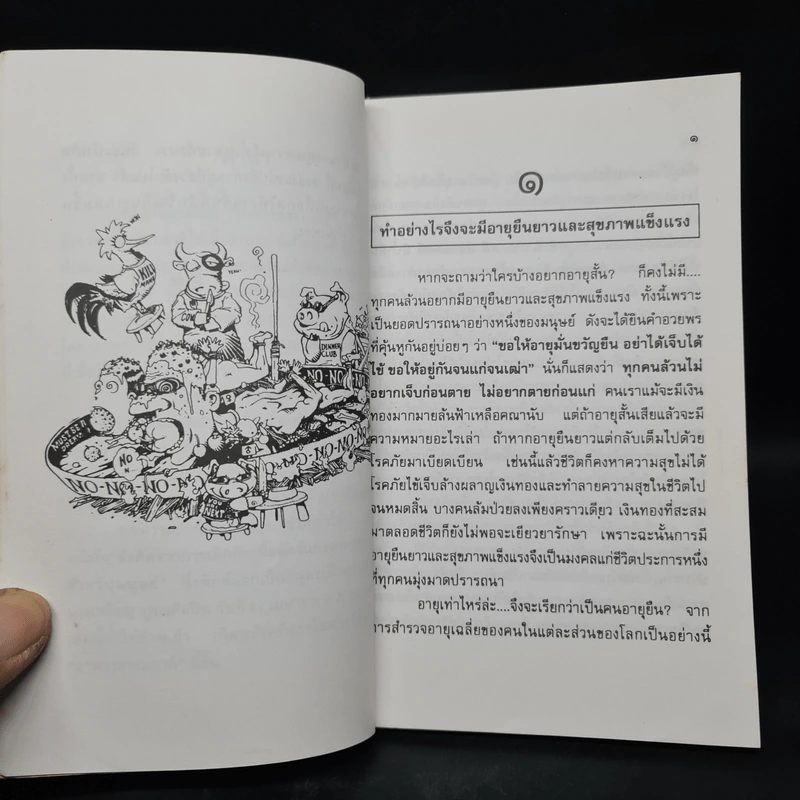 KILL
COW
DINNER
CLUB
NO-NO
NO
NO-NO
๑
๑
ทำอย่างไรจึงจะมีอายุยืนยาวและสุขภาพแข็งแรง
หากจะถามว่าใครบ้างอยากอายุสั้น? ก็คงไม่มี....
ทุกคนล้วนอยากมีอายุยืนยาวและสุขภาพแข็งแรง ทั้งนี้เพราะ
เป็นยอดปรารถนาอย่างหนึ่งของมนุษย์ ดังจะได้ยินคำอวยพร
ที่คุ้นหูกันอยู่บ่อยๆ ว่า “ขอให้อายุมั่นขวัญยืน อย่าได้เจ็บได้
ไข้ ขอให้อยู่กันจนแก่จนเฒ่า” นั่นก็แสดงว่า ทุกคนล้วนไม่
อยากเจ็บก่อนตาย ไม่อยากตายก่อนแก่ คนเราแม้จะมีเงิน
ทองมากมายล้นฟ้าเหลือคณานับ แต่ถ้าอายุสั้นเสียแล้วจะมี
ความหมายอะไรเล่า ถ้าหากอายุยืนยาวแต่กลับเต็มไปด้วย
โรคภัยมาเบียดเบียน เช่นนี้แล้วชีวิตก็คงหาความสุขไม่ได้
โรคภัยไข้เจ็บล้างผลาญเงินทองและทำลายความสุขในชีวิตไป
จนหมดสิ้น บางคนล้มป่วยลงเพียงคราวเดียว เงินทองที่สะสม
มาตลอดชีวิตก็ยังไม่พอจะเยียวยารักษา เพราะฉะนั้นการมี
อายุยืนยาวและสุขภาพแข็งแรงจึงเป็นมงคลแก่ชีวิตประการหนึ่ง
ที่ทุกคนมุ่งมาดปรารถนา
อายุเท่าไหร่ล่ะ....จึงจะเรียกว่าเป็นคนอายุยืน? จาก
การสำรวจอายุเฉลี่ยของคนในแต่ละส่วนของโลกเป็นอย่างนี้